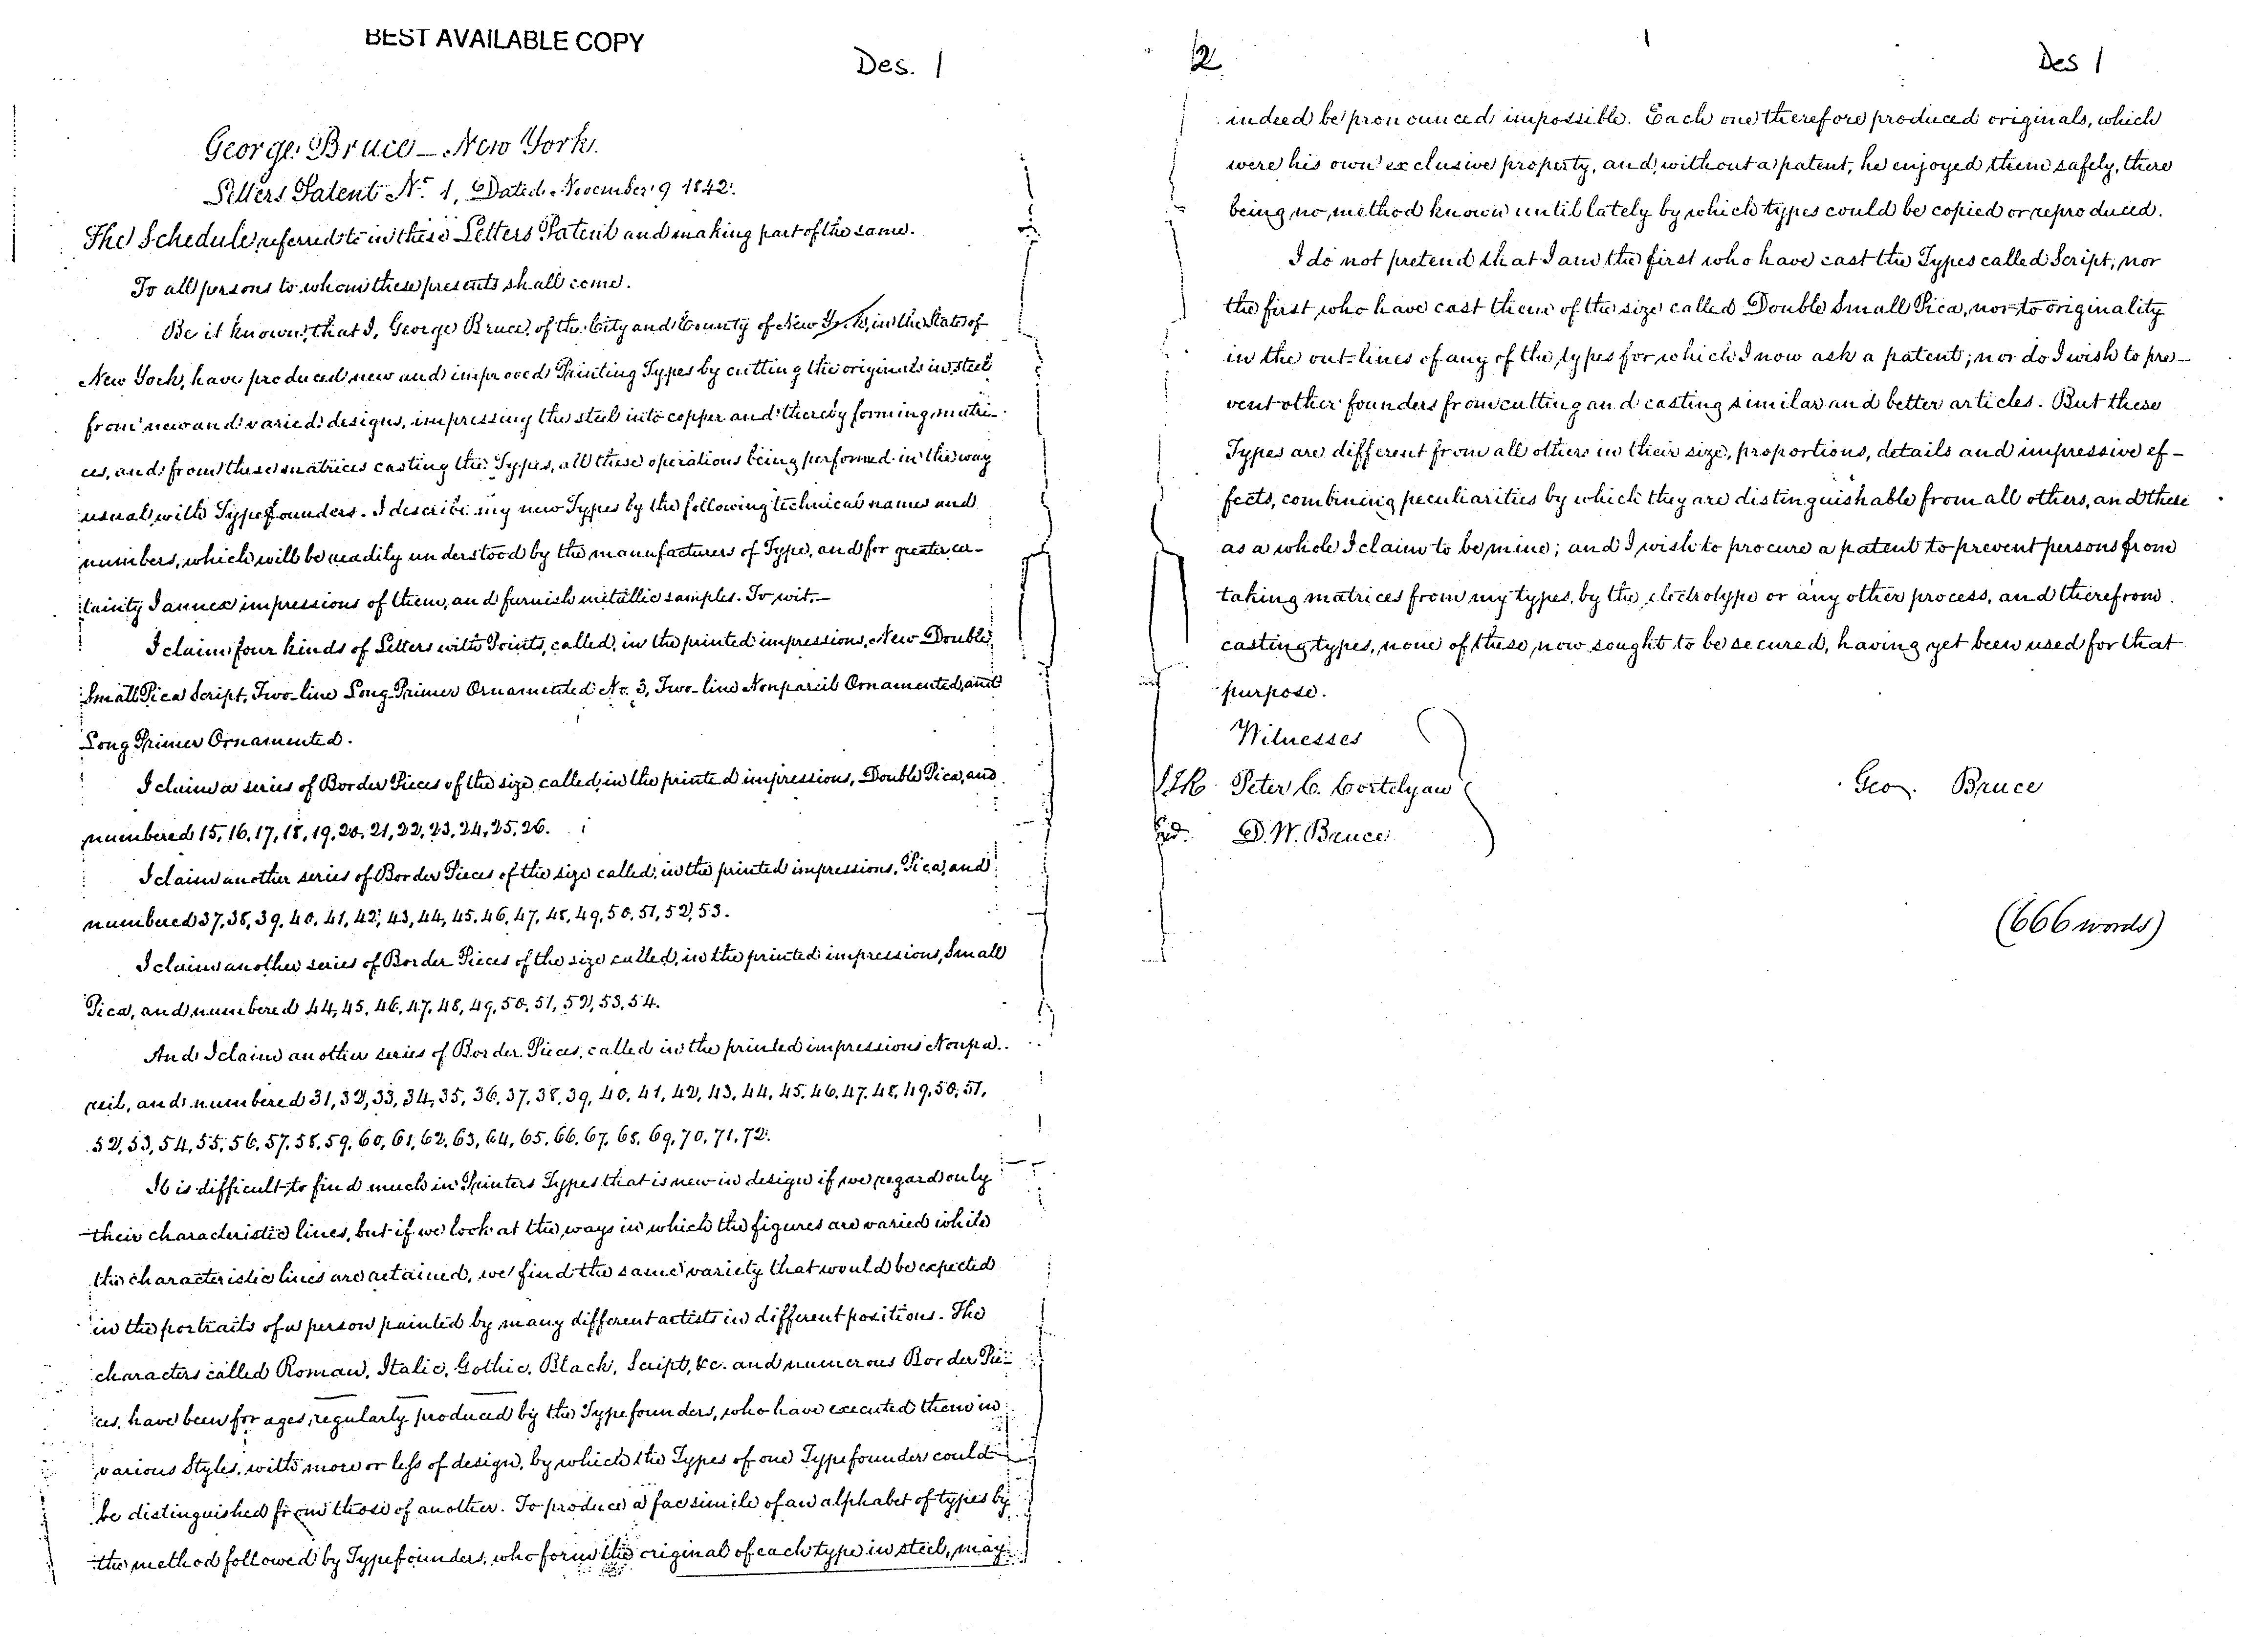 BEST AVAILABLE COPY
Des. 1
George Bruce — New York.
Letters Patent No. 1, Dated November 9 1842.
The Schedule referred to in these Letters Patent and making part of the same.
To all persons to whom these presents shall come.
Be it known, that I, George Bruce, of the City and County of New York, in the State of
New York, have produced new and improved Printing Types by cutting the originals in steel
from new and varied designs, impressing the steel into copper and thereby forming matri-
ces, and from these matrices casting the Types, all these operations being performed in the way
usual with Typefounders. I describe my new Types by the following technical names and
numbers, which will be readily understood by the manufacturers of Type, and for greater cer-
tainty I annex impressions of them, and furnish metallic samples. To wit,—
I claim four kinds of Letters with Points, called, in the printed impressions, New Double
Small Pica Script, Two-line Long Primer Ornamented No. 3, Two-line Nonpareil Ornamented, and
Long Primer Ornamented.
I claim a series of Border Pieces of the size called, in the printed impressions, Double Pica, and
numbered 15, 16, 17, 18, 19, 20, 21, 22, 23, 24, 25, 26.
I claim another series of Border Pieces of the size called, in the printed impressions, Pica, and
numbered 37, 38, 39, 40, 41, 42, 43, 44, 45, 46, 47, 48, 49, 50, 51, 52, 53.
I claim another series of Border Pieces of the size called, in the printed impressions, Small
Pica, and numbered 44, 45, 46, 47, 48, 49, 50, 51, 52, 53, 54.
And I claim another series of Border Pieces, called in the printed impressions Nonpa-
reil, and numbered 31, 32, 33, 34, 35, 36, 37, 38, 39, 40, 41, 42, 43, 44, 45, 46, 47, 48, 49, 50, 51,
52, 53, 54, 55, 56, 57, 58, 59, 60, 61, 62, 63, 64, 65, 66, 67, 68, 69, 70, 71, 72.
It is difficult to find much in Printers Types that is new in design if we regard only
their characteristic lines, but if we look at the ways in which the figures are varied while
the characteristic lines are retained, we find the same variety that would be expected
in the portraits of a person painted by many different artists in different positions. The
characters called Roman, Italic, Gothic, Black, Script, &c. and numerous Border Pie-
ces, have been for ages regularly produced by the Typefounders, who have executed them in
various Styles, with more or less of design, by which the Types of one Typefounder could
be distinguished from those of another. To produce a facsimile of an alphabet of types by
the method followed by Typefounders, who form the original of each type in steel, may
2
Des 1
indeed be pronounced impossible. Each one therefore produced originals, which
were his own exclusive property, and without a patent, he enjoyed them safely, there
being no method known until lately by which types could be copied or reproduced.
I do not pretend that I am the first who have cast the Types called Script, nor
the first who have cast them of the size called Double Small Pica, nor to originality
in the out-lines of any of the types for which I now ask a patent; nor do I wish to pre-
vent other founders from cutting and casting similar and better articles. But these
Types are different from all others in their size, proportions, details and impressive ef-
fects, combining peculiarities by which they are distinguishable from all others, and these
as a whole I claim to be mine; and I wish to procure a patent to prevent persons from
taking matrices from my types, by the electrotype or any other process, and therefrom
casting types, none of these, now sought to be secured, having yet been used for that
purpose.
Witnesses
Peter C. Cortelyou
Geo. Bruce
D. W. Bruce
(666 words)